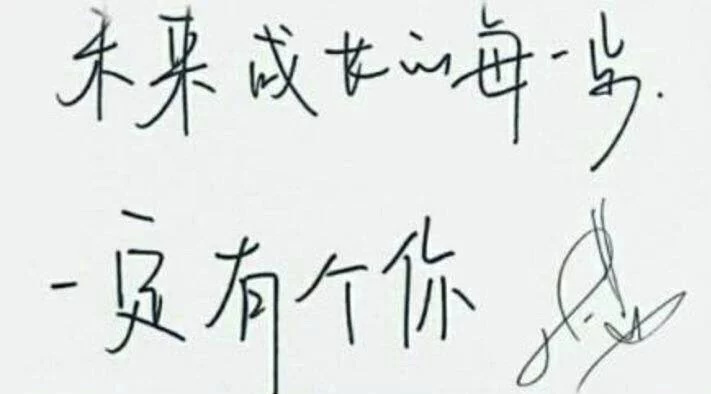 未来成长的每一步.
一定有个你